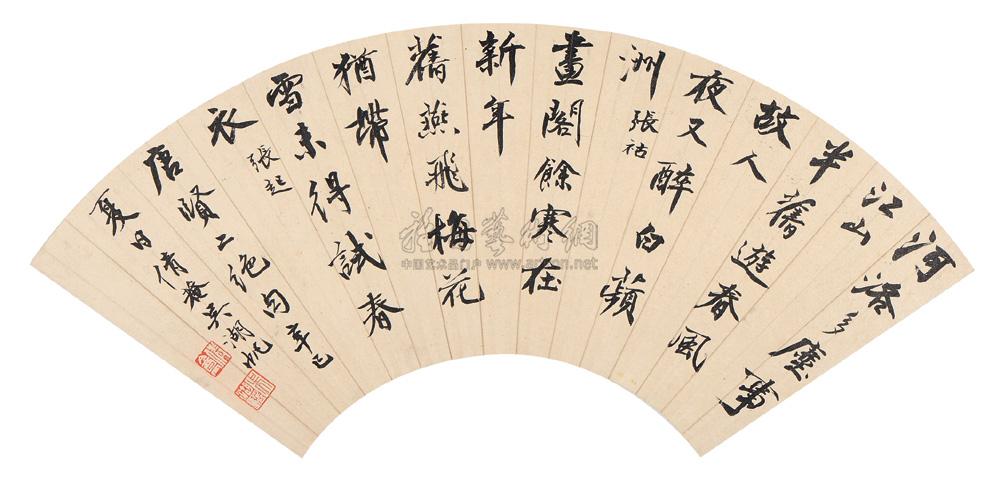 河洛多塵事
江山
半舊遊春風
故人
夜又醉白蘋
洲 張祜
畫閣餘寒在
新年
舊燕飛梅花
猶帶
雪未得試春
衣 張起
唐賢二絕句辛巳
夏日倩盦吳湖帆
藝術網
中国艺术品门户 www.artron.net